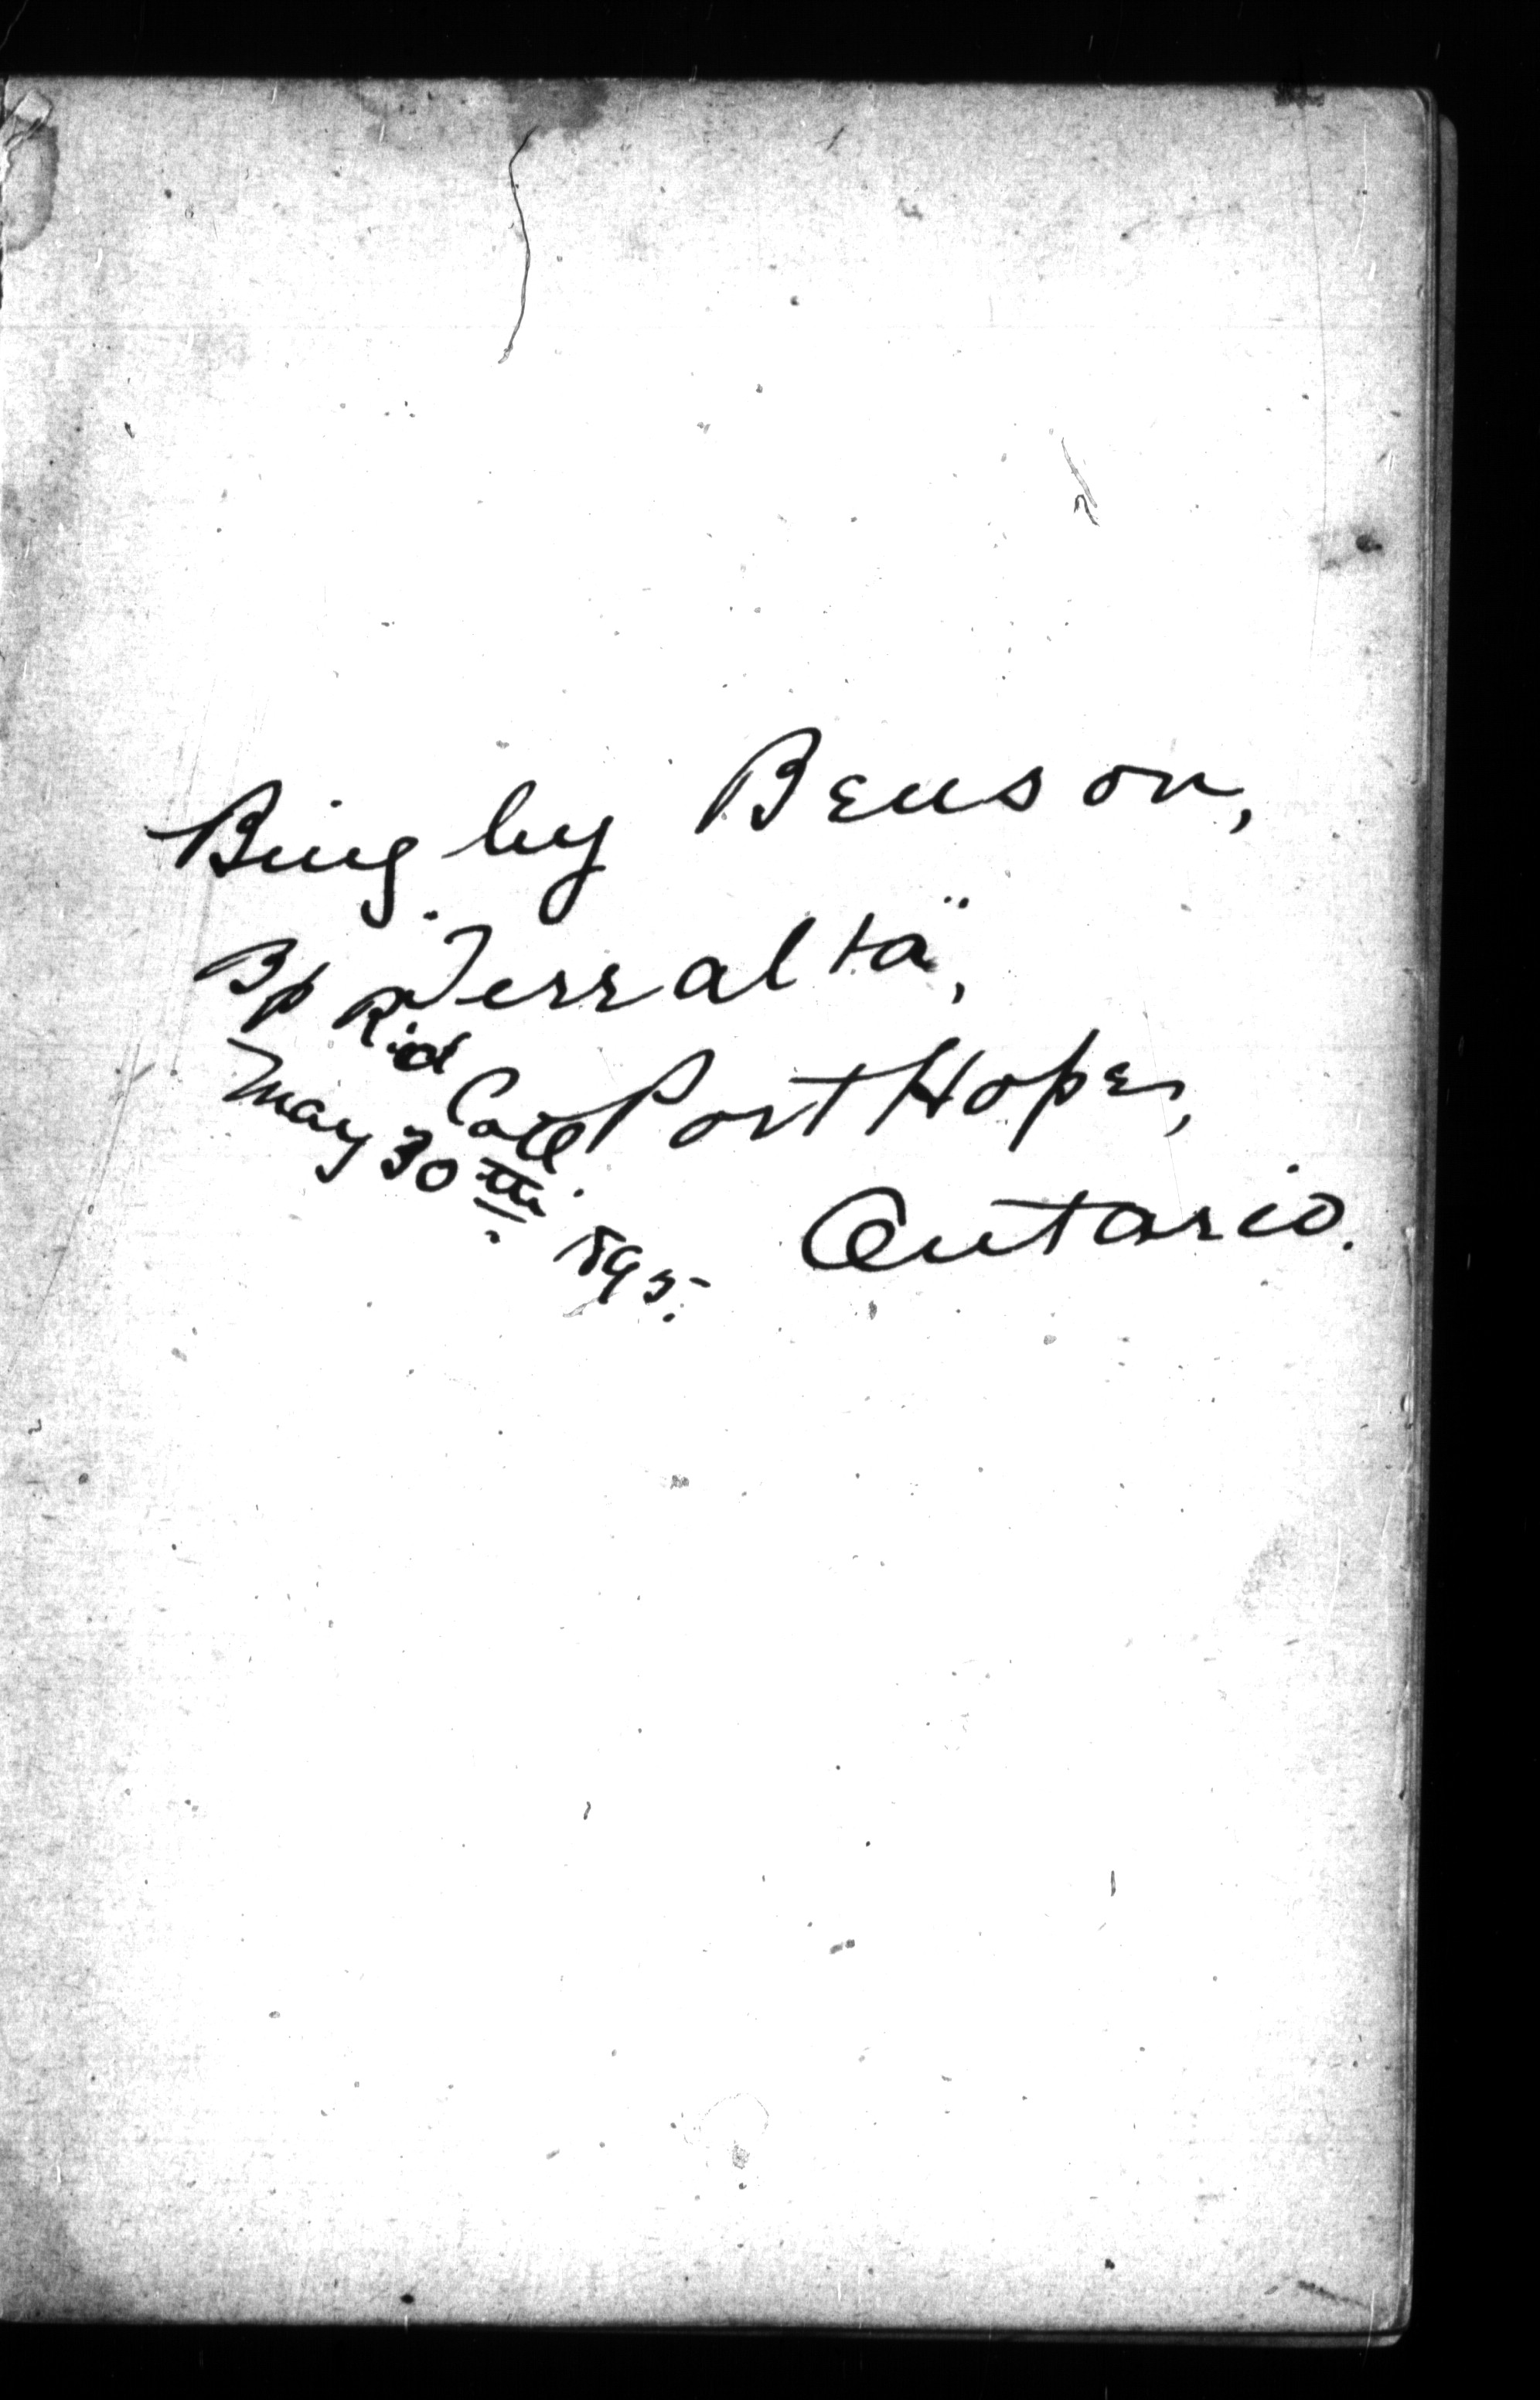 Bingley Benson,
"Terralta",
Port Hope,
Ontario.
Bp Rid Coll.
May 30th. 1895.